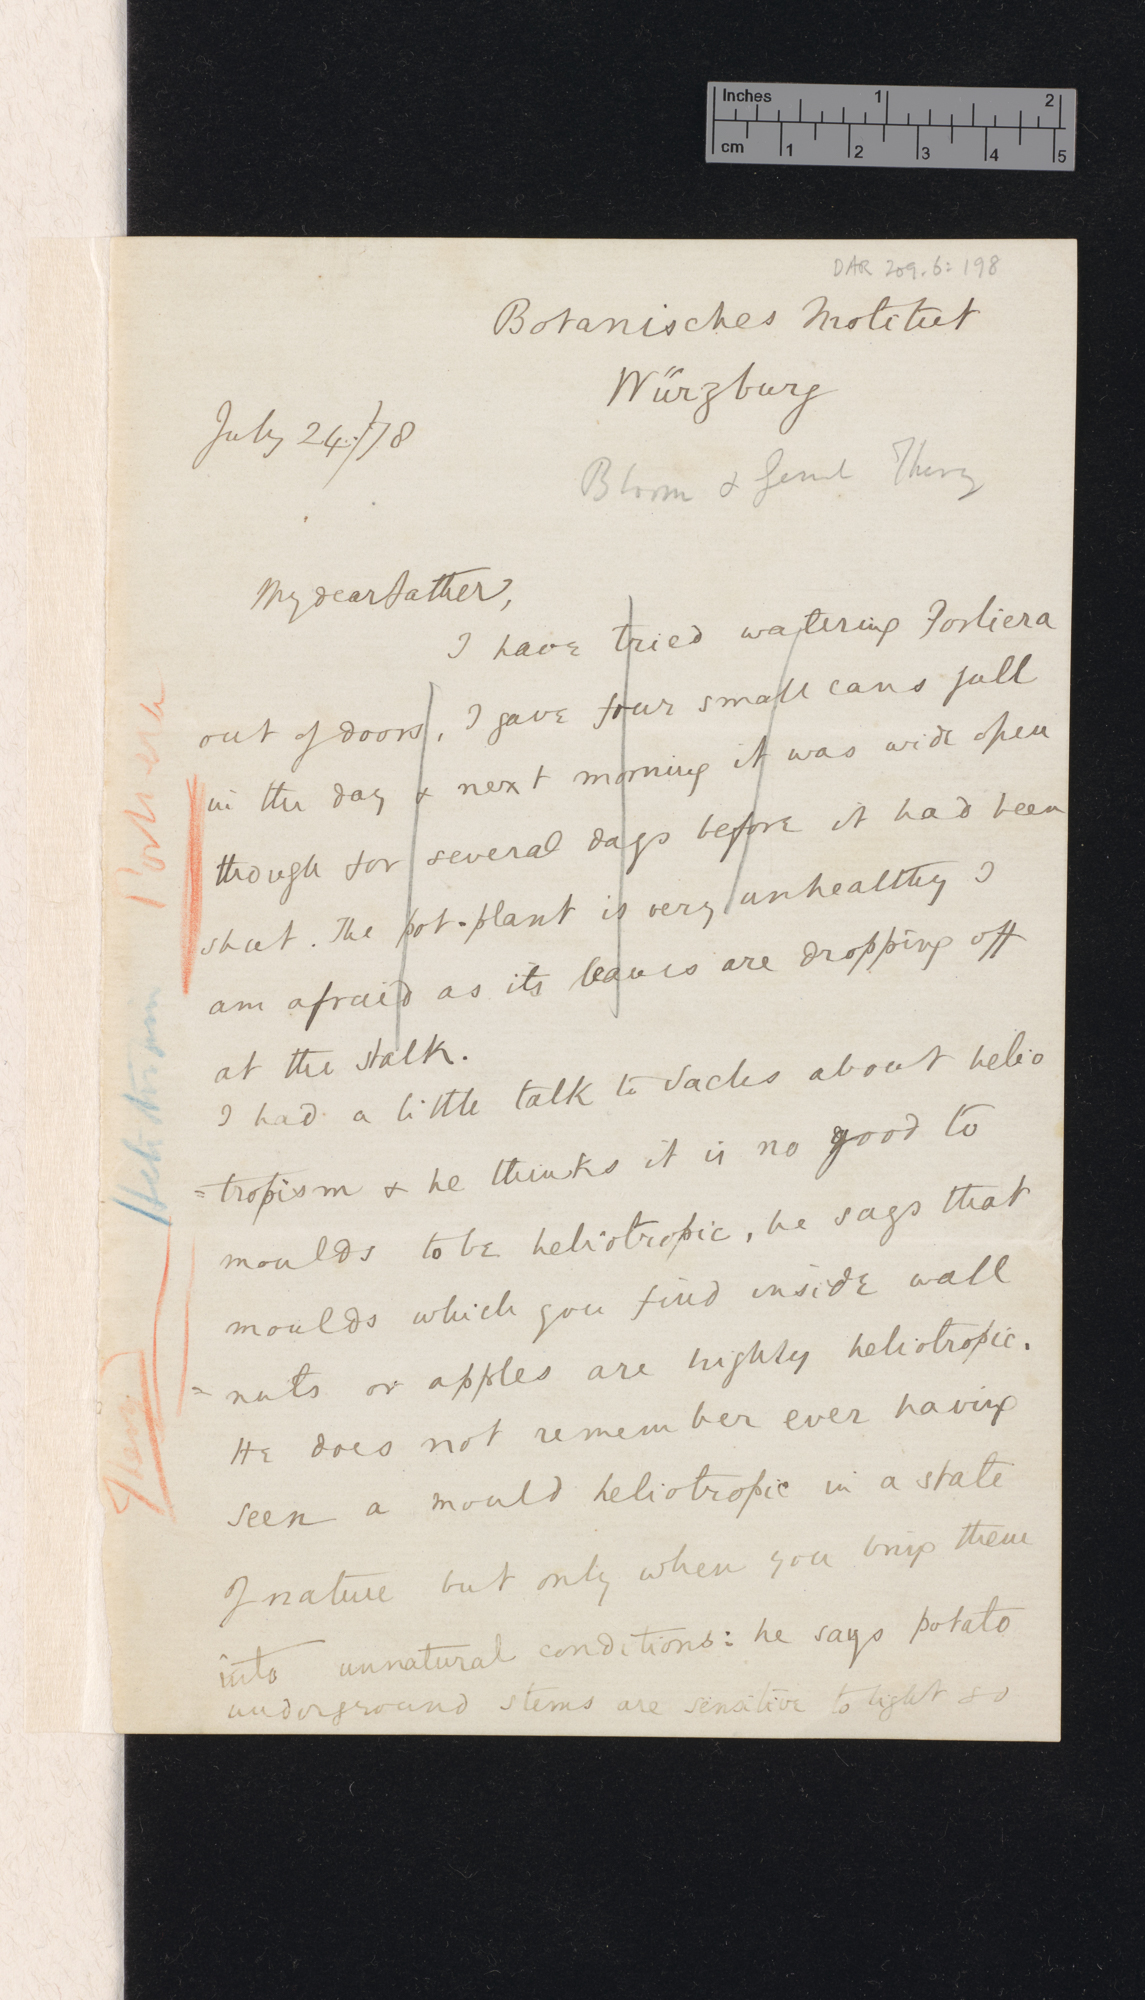 Inches 1 2
cm 1 2 3 4 5
DAR 209.6: 198
Botanisches Institut
Würzburg
July 24./78
Bloom & Genl Theory
My dear father,
I have tried watering Porliera
out of doors, I gave four small cans full
in the day & next morning it was wide open
though for several days before it had been
shut. The pot-plant is very unhealthy I
am afraid as its leaves are dropping off
at the stalk.
I had a little talk to Sachs about helio
=tropism & he thinks it is no good to
moulds to be heliotropic, he says that
moulds which you find inside wall
=nuts or apples are highly heliotropic.
He does not remember ever having
seen a mould heliotropic in a state
of nature but only when you bring them
into unnatural conditions: he says potato
underground stems are sensitive to light so
Porliera
Heliotropism
Theory